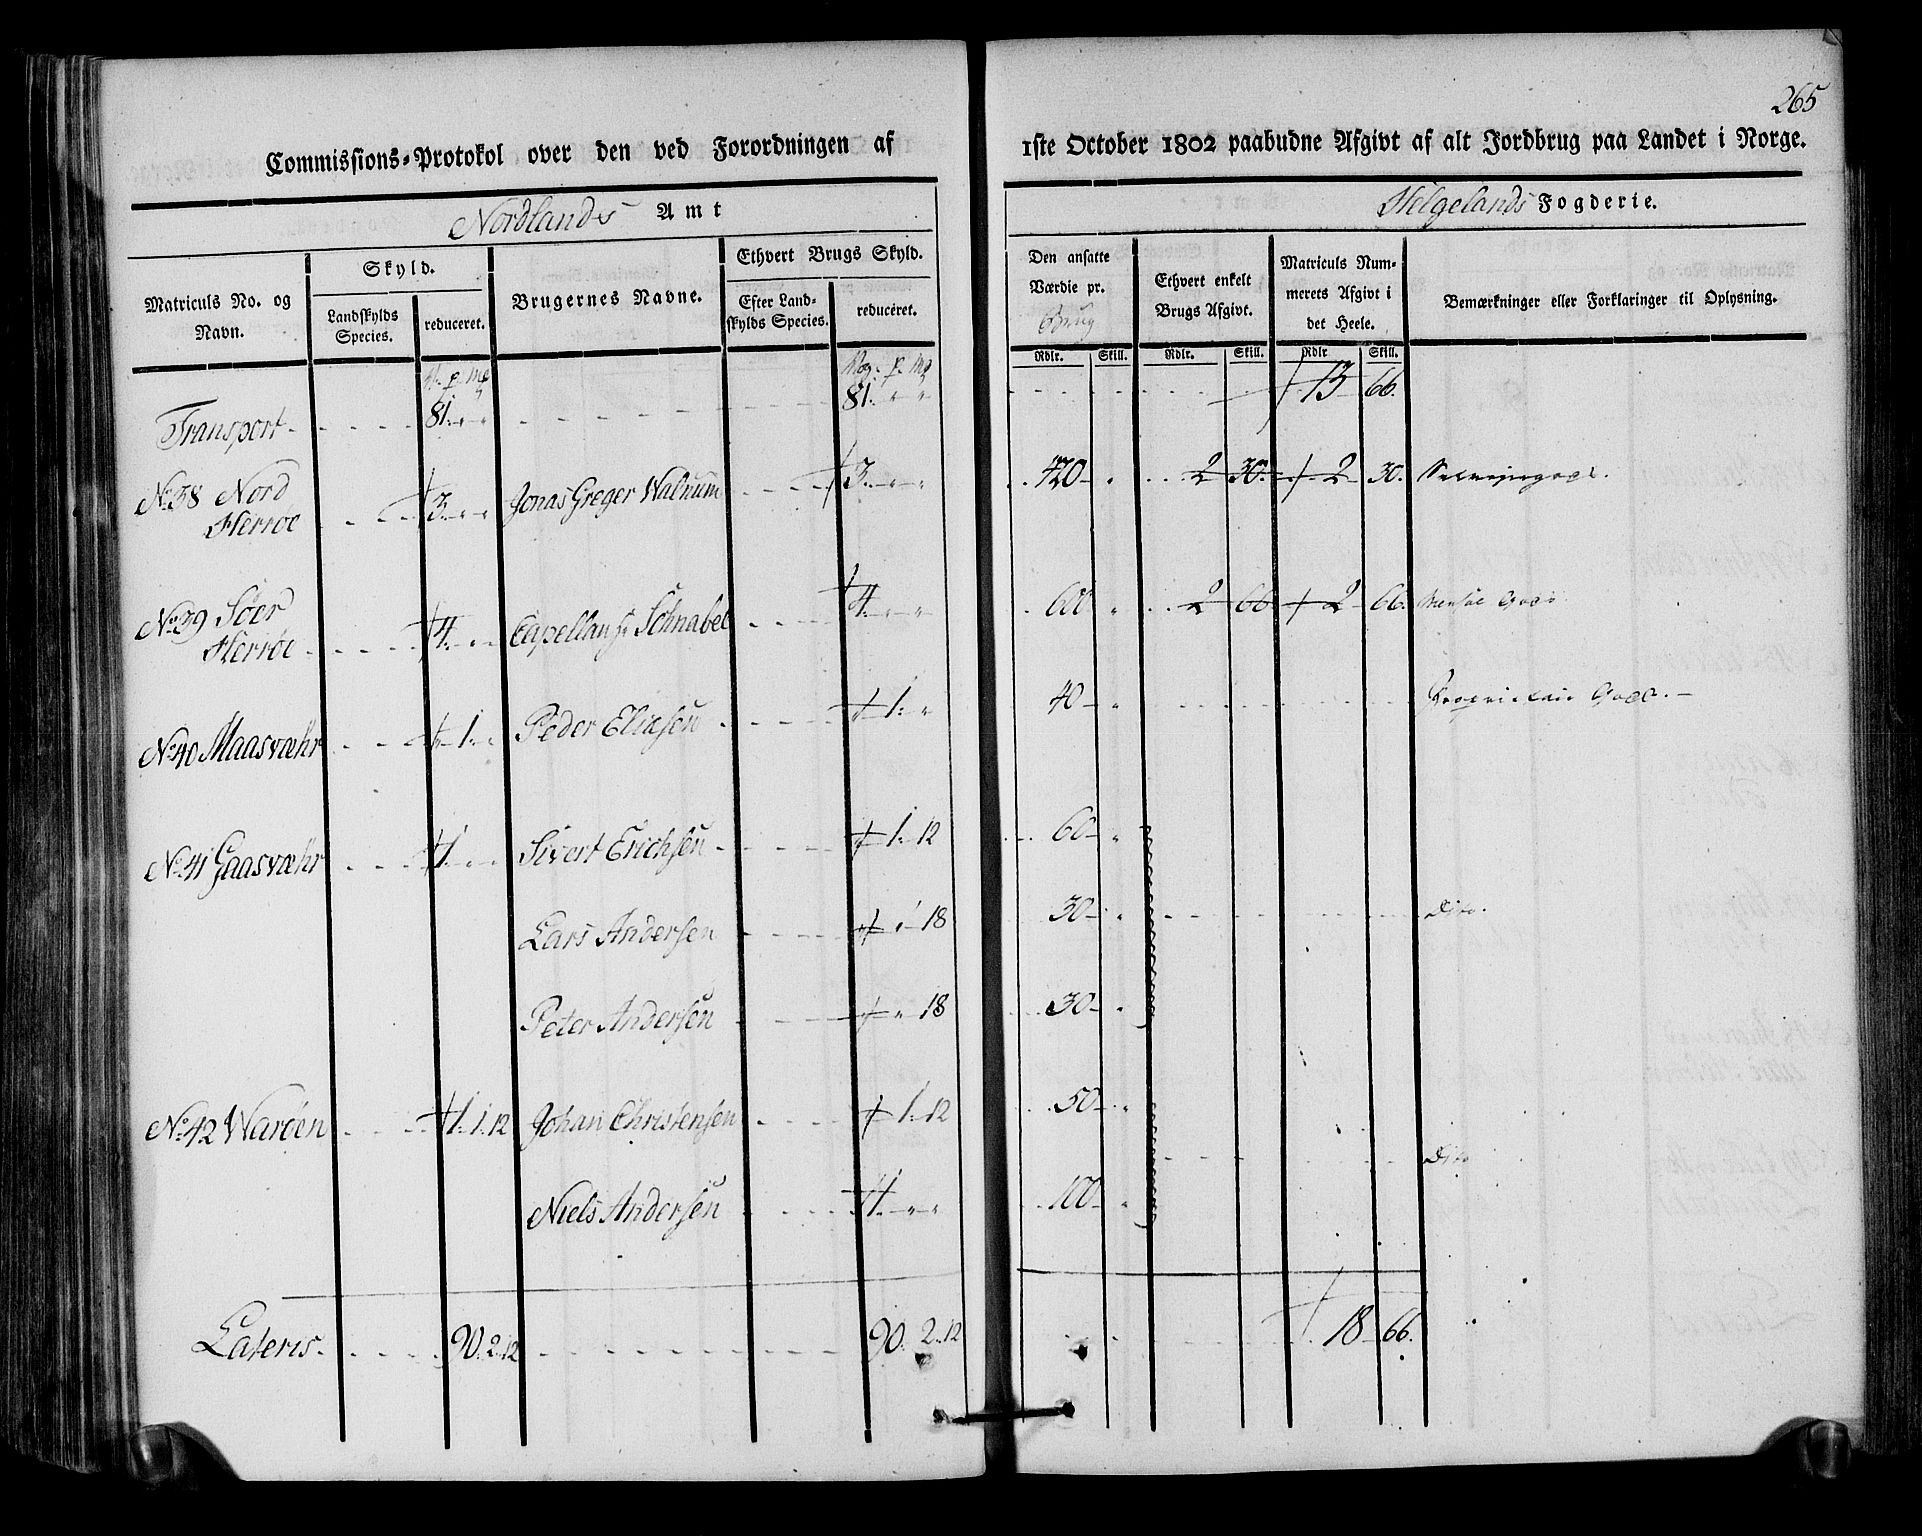 265
Commissions-Protokol over den ved Forordningen af 1ste October 1802 paabudne Afgivt af alt Jordbrug paa Landet i Norge.
Nordlands Amt Helgelands Fogderie.
Matriculs No. og Navn. Skyld. Landskylds Species. reduceret. Brugernes Navne. Ethvert Brugs Skyld. Efter Landskylds Species. reduceret. Den ansatte Værdie pr. Brug Ethvert enkelt Brugs Afgivt. Matriculs Nummerets Afgivt i det Heele. Bemærkninger eller Forklaringer til Oplysning.
Rdlr. Skill. Rdlr. Skill. Rdlr Skill.
p. mg p. mg
Transport 81. " " 81. " " 13 66.
No. 38 Nord Herröe 3. " " Jonas Greger Walnum 3. " " 420 " 2 30. 2 30.
No. 39 Söer Herröe 4. " " Capellan Hr Schnabel 4. " " 600 " 2 66 2 66. Gods
No. 40 Maasvæhr " 1. " Peder Eliasen " 1. " 40 " Proprietair Gods.
No. 41 Gaasvæhr 1. " " Sivert Erichsen " 1. 12 60 "
Lars Andersen " " 18 30 " Dito.
Peter Andersen " " 18 30 "
No. 42 Waröen 1. 1. 12 Johan Christensen " 1. 12 50 "
Dito
Niels Andersen 1. " " 100 "
Lateris. 90. 2. 12 90. 2. 12 18 66.